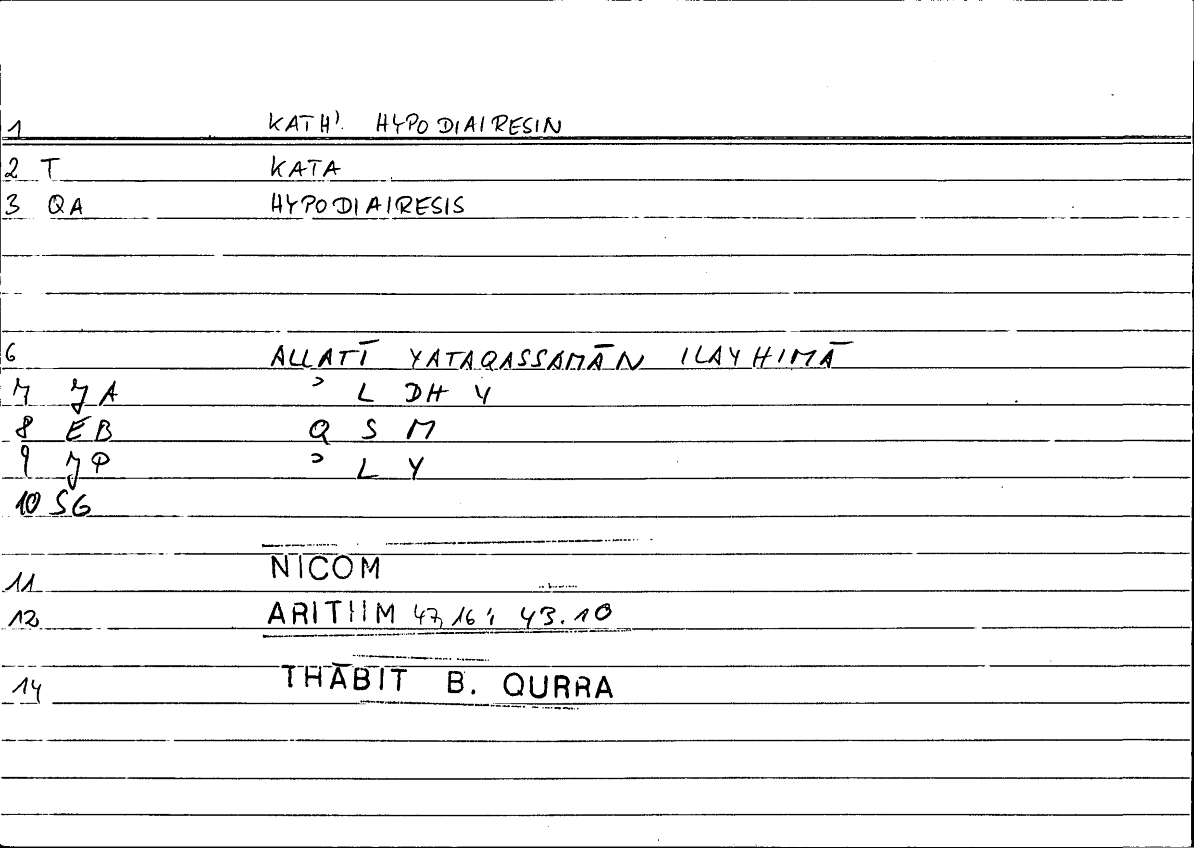 1 KATH'. HYPODIAIRESIN
2 T KATA
3 QA HYPODIAIRESIS
6 ALLATĪ YATAQASSAMĀN ILAYHIMĀ
7 JA ʾ L DH Y
8 EB Q S M
9 JP ʾ L Y
10 SG
11 NICOM
12 ARITHM 47,16; 43.10
14 THĀBIT B. QURRA